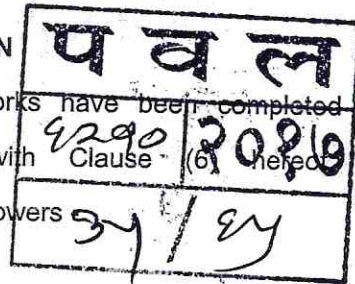 N
प व ल
orks have been completed
२०१७
with Clause (6) hereof
owers
/